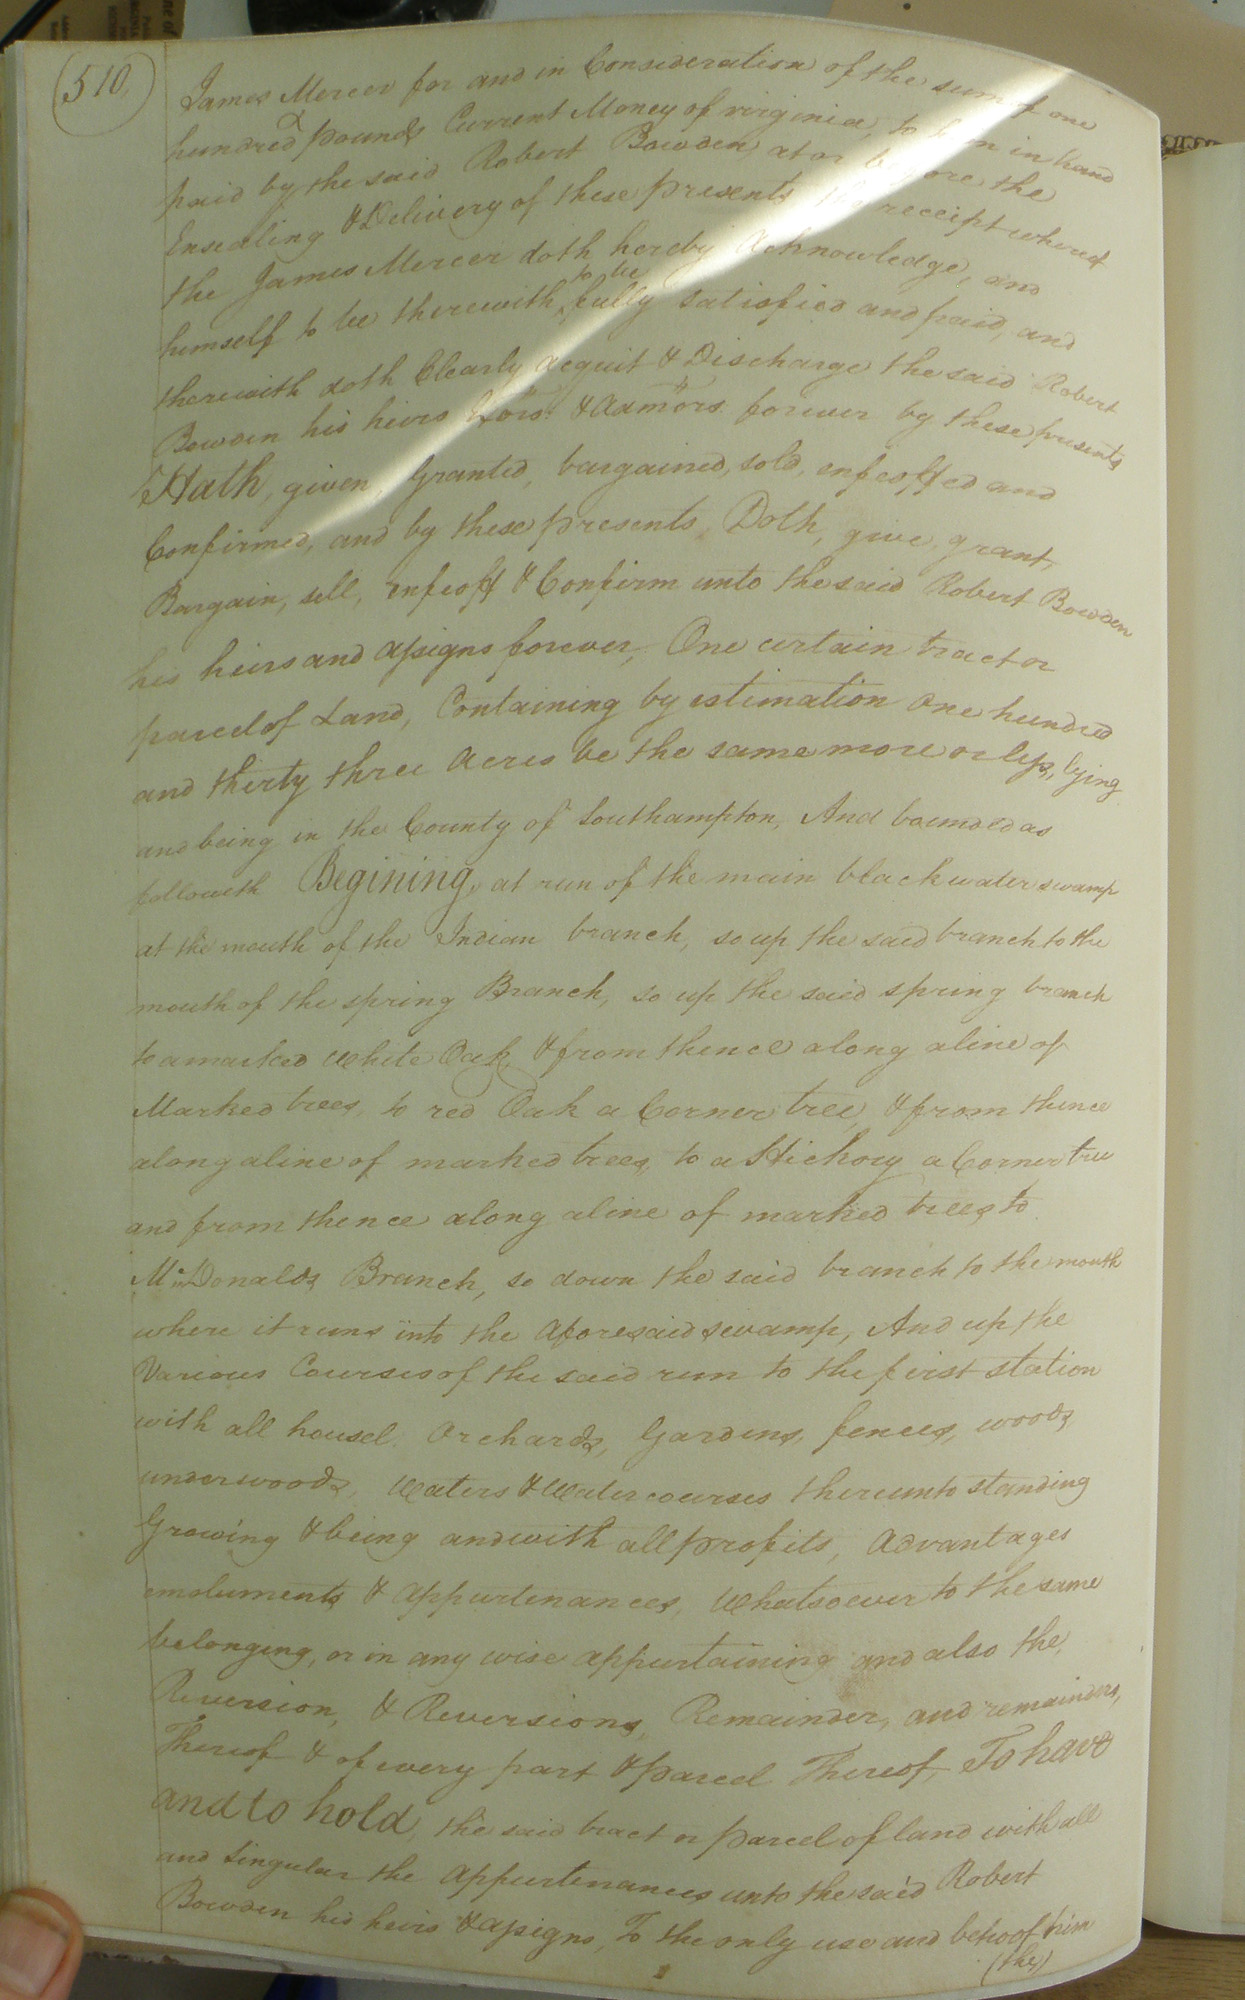 (510)
James Mercer for and in Consideration of the sum of one
hundred pounds Current Money of virginia, to him in hand
paid by the said Robert Bowden, at or before the
Ensealing & Delivery of these presents the receipt whereof
the James Mercer doth hereby acknowledge, and
himself to be therewith to be fully satisfied and paid, and
therewith doth Clearly acquit & Discharge the said Robert
Bowden his heirs Exors. & Admors. forever by these presents
Hath, given, Granted, bargained, sold, enfeoffed and
Confirmed, and by these presents, Doth, give, grant,
Bargain, sell, enfeoff & Confirm unto the said Robert Bowden
his heirs and assigns forever, One certain tract or
parcel of Land, Containing by estimation One hundred
and thirty three Acres be the same more or less, lying
and being in the County of Southampton, And bounded as
followeth Begining, at run of the main black water swamp
at the mouth of the Indian branch, so up the said branch to the
mouth of the spring Branch, so up the said spring branch
to a marked white Oak, & from thence along a line of
Marked trees, to red Oak a Corner tree, & from thence
along a line of marked trees, to a Hickory a Corner tree
and from thence along a line of marked trees to
McDonalds Branch, so down the said branch to the mouth
where it runs into the aforesaid swamp, And up the
Various Courses of the said run to the first station
with all housel. Orchards, Gardens, fences, woods,
underwoods, Waters & Water courses thereunto standing
Growing & being and with all profits, Advantages
emoluments & appurtenances, Whatsoever to the same
belonging, or in any wise appurtaining and also the,
Reversion, & Reversions, Remainder, and remainders,
Thereof & of every part & parcel Thereof, To have
and to hold, the said tract or parcel of land with all
and Singular the appurtenances unto the said Robert
Bowden his heirs & assigns, To the only use and behoof him
(the)